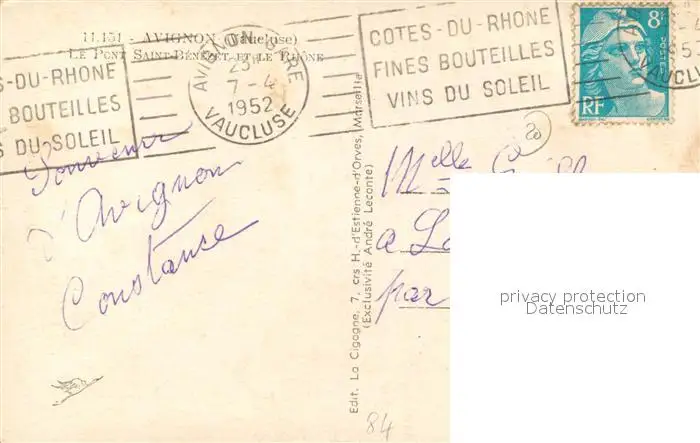 11.151 - AVIGNON (Vaucluse)
LE PONT SAINT-BÉNEZET ET LE RHÔNE
S-DU-RHONE
BOUTEILLES
S DU SOLEIL
AVIGNON GARE
25
7-4
1952
VAUCLUSE
COTES-DU-RHONE
FINES BOUTEILLES
VINS DU SOLEIL
8F
POSTES
RF
VAUCLUSE
Souvenir
d'Avignon
Constance
Edit. La Cigogne, 7, crs H.-d'Estienne-d'Orves, Marseille
(Exclusivité André Leconte)
Melle
a
par
privacy protection
Datenschutz
84